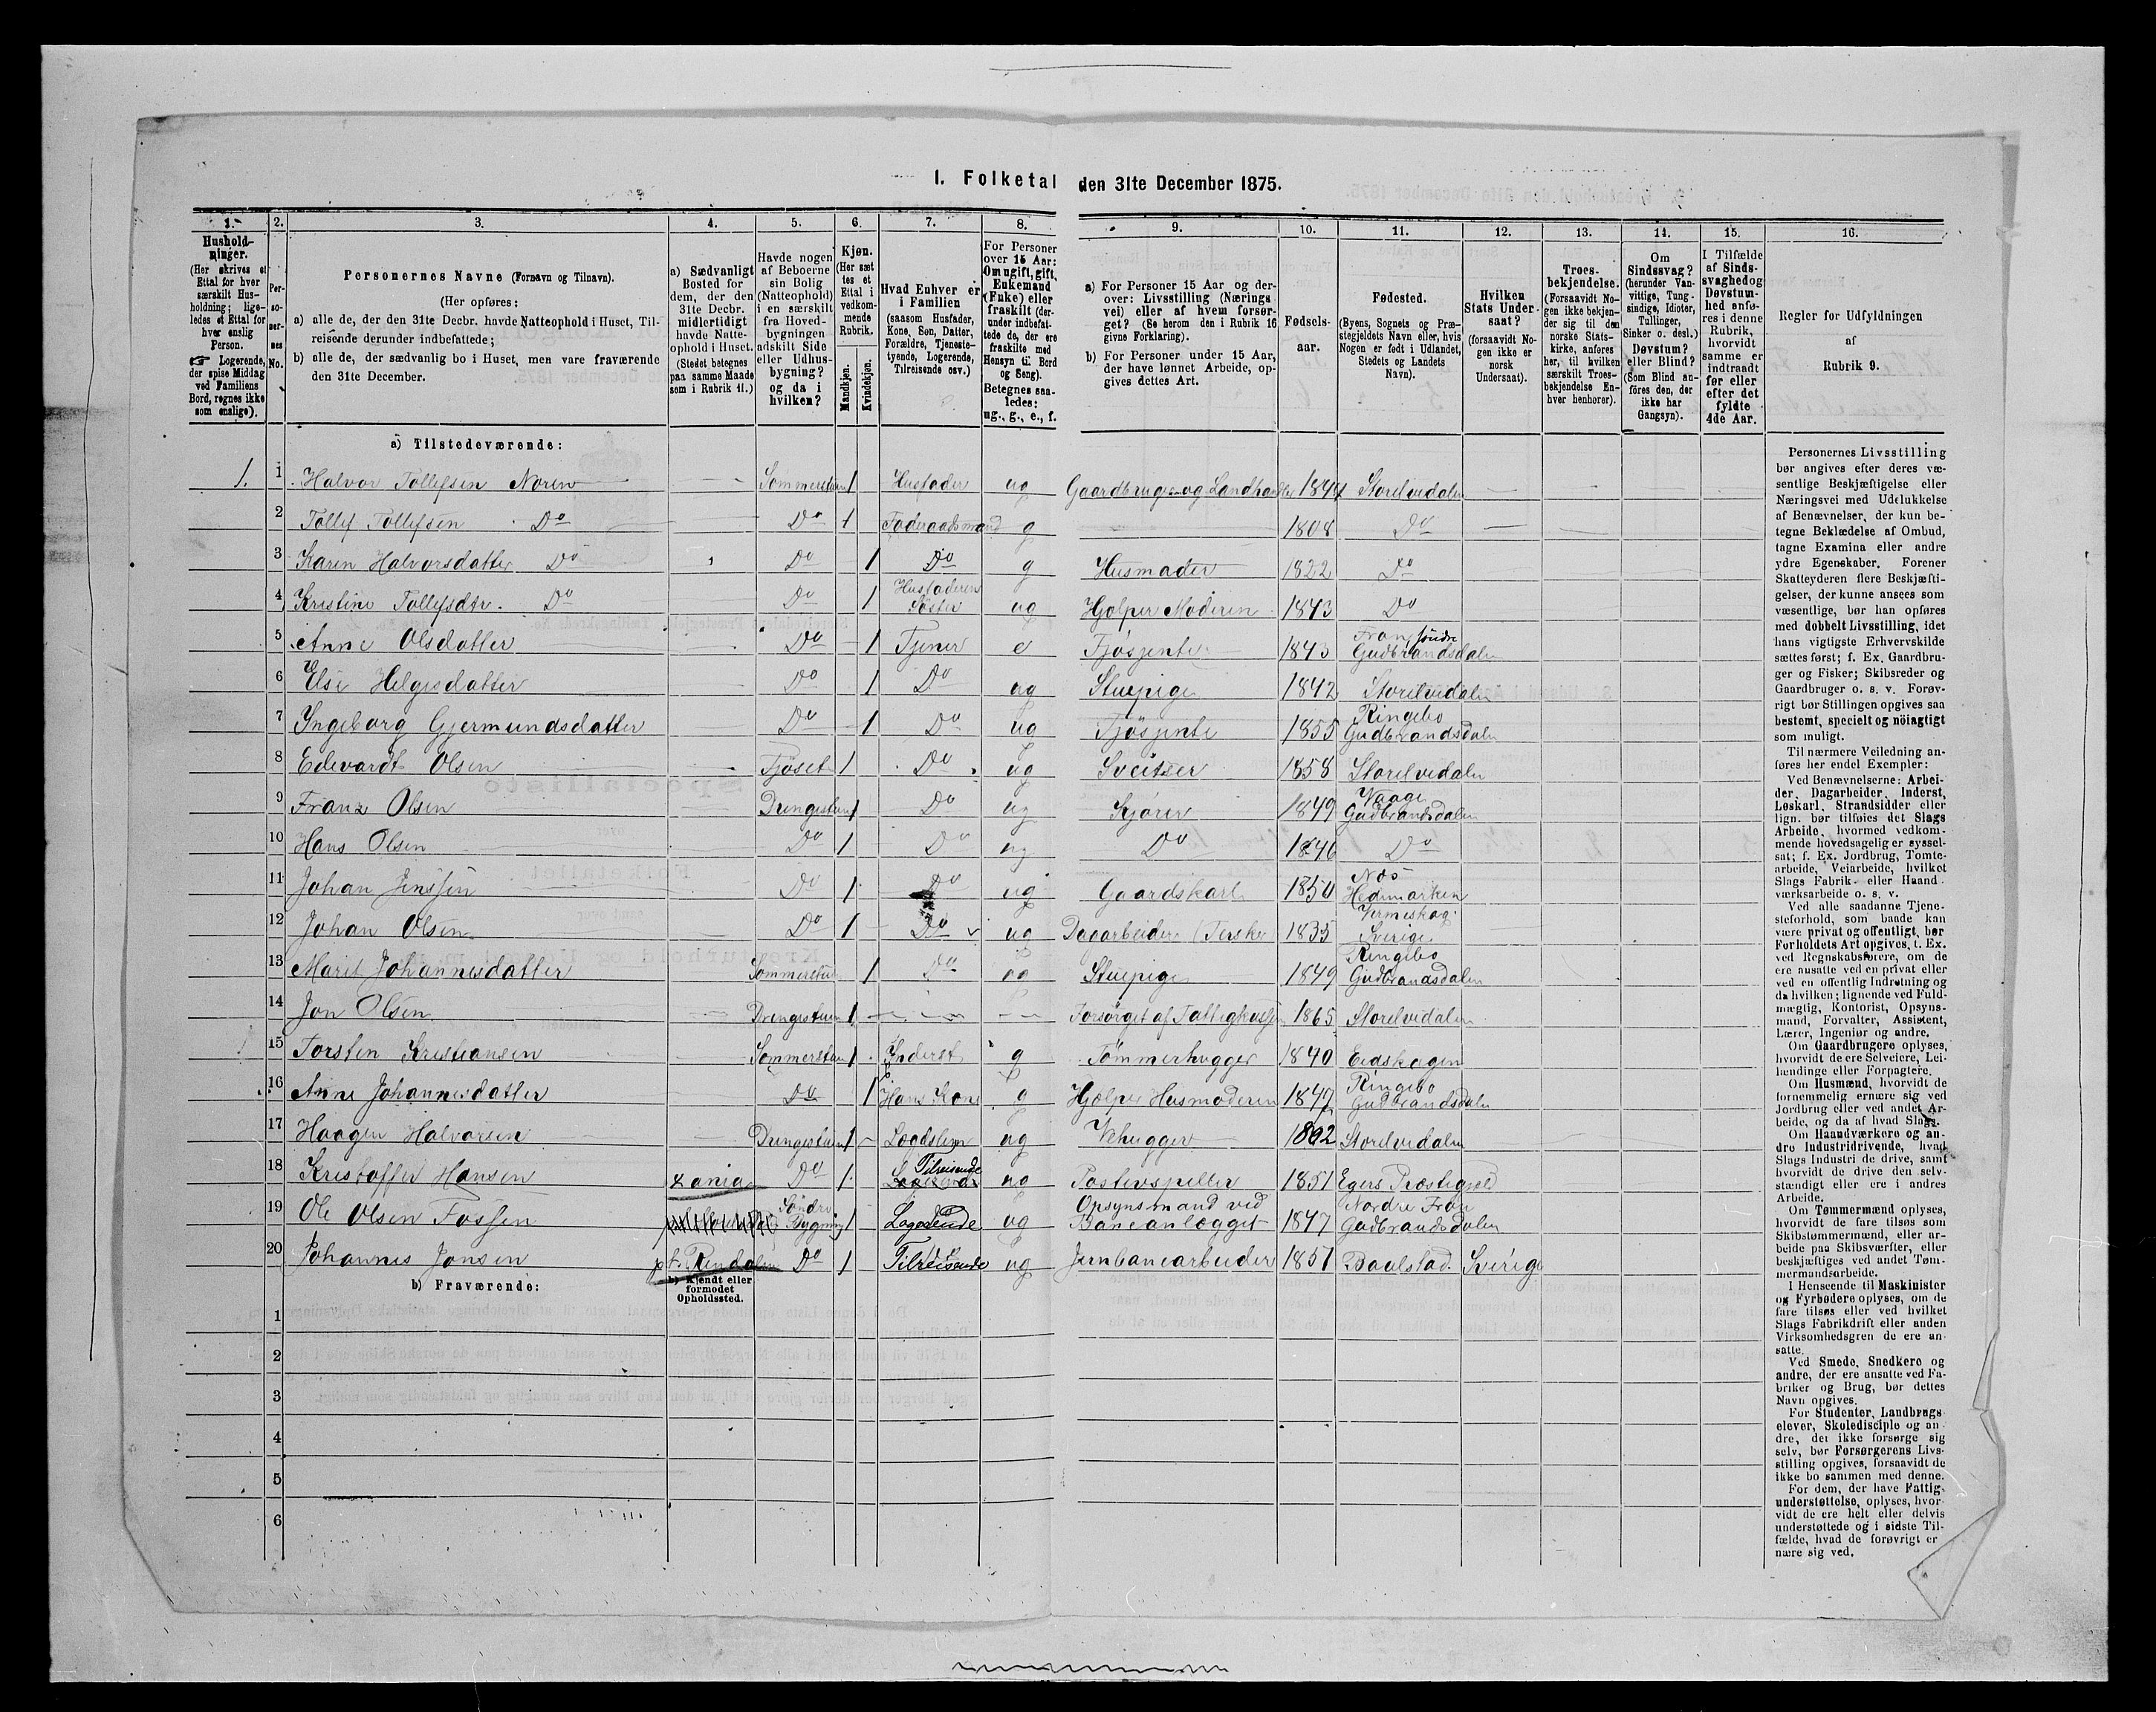 I. Folketal den 31te December 1875.
1. 2. 3. 4. 5. 6. 7. 8. 9. 10. 11. 12. 13. 14. 15. 16.
Hushold-
ninger.
(Her skrives et
Ettal for hver
særskilt Hus-
holdning; lige-
ledes et Ettal for
hver enslig
Person.
☞ Logerende,
der spise Middag
ved Familiens
Bord, regnes ikke
som enslige).
Per-
so-
ner-
nes
No.
Personernes Navne (Fornavn og Tilnavn).
(Her opføres:
a) alle de, der den 31te Decbr. havde Natteophold i Huset, Til-
reisende derunder indbefattede;
b) alle de, der sædvanlig bo i Huset, men vare fraværende
den 31te December.
a) Sædvanligt
Bosted for
dem, der den
31te Decbr.
midlertidigt
havde Natte-
ophold i Huset.
(Stedet betegnes
paa samme Maade
som i Rubrik 11.)
Havde nogen
af Beboerne
sin Bolig
(Natteophold)
i en særskilt
fra Hoved-
bygningen
adskilt Side
eller Udhus-
bygning?
og da i
hvilken?
Kjøn.
(Her sæt
tes et
Ettal i
vedkom-
mende
Rubrik.
Mandkjøn.
Kvindekjøn.
Hvad Enhver er
i Familien
(saasom Husfader,
Kone, Søn, Datter,
Forældre, Tjeneste-
tyende, Logerende,
Tilreisende osv.)
For Personer
over 15 Aar:
Om ugift, gift,
Enkemand
(Enke) eller
fraskilt (der-
under indbefat-
tede de, der ere
fraskilte med
Hensyn til Bord
og Seng).
Betegnes saa-
ledes:
ug., g., e., f.
a) For Personer 15 Aar og der-
over: Livsstilling (Nærings
vei) eller af hvem forsør-
get? (Se herom den i Rubrik 16
givne Forklaring).
b) For Personer under 15 Aar,
der have lønnet Arbeide, op-
gives dettes Art.
Fødsels-
aar.
Fødested.
(Byens, Sognets og Præ-
stegjeldets Navn eller, hvis
Nogen er født i Udlandet,
Stedets og Landets
Navn).
Hvilken
Stats Under-
saat?
(forsaavidt No-
gen ikke er
norsk
Undersaat).
Troes-
bekjendelse.
(Forsaavidt No-
gen ikke bekjen-
der sig til den
norske Stats-
kirke, anføres
her, til hvilken
særskilt Troes-
bekjendelse En-
hver henhører).
Om
Sindssvag?
(herunder Van-
vittige, Tung-
sindige, Idioter,
Tullinger,
Sinker o. desl.)
Døvstum?
eller Blind?
(Som Blind an-
føres den, der
ikke har
Gangsyn).
I Tilfælde
af Sinds-
svaghed og
Døvstum-
hed anfø-
res i denne
Rubrik,
hvorvidt
samme er
indtraadt
før eller
efter det
fyldte
4de Aar.
Regler for Udfyldningen
af
Rubrik 9.
a) Tilstedeværende:
1. 1 Halvor Tollefsen Noren Sommerstuen 1 Husfader ug Gaardbruger og Landhandler 1844 Storelvedalen
2 Tollef Tollefsen Do Do 1 Føderaadsmand g 1808 Do
3 Karen Halvorsdatter Do Do 1 Do g Husmoder 1822 Do
4 Kristine Tollefsdtr. Do Do 1 Husfaderens Søster ug Hjælper Moderen 1843 Do
5 Anne Olsdatter Do 1 Tjener e Fjøsjente 1843 Fron søndre Gudbrandsdalen
6 Else Helgesdatter Do 1 Do ug Stuepige 1842 Storelvedalen
7 Ingeborg Gjermundsdatter Do 1 Do ug Fjøsjente 1855 Ringebo Gudbrandsdalen
8 Edevardt Olsen Fjøset 1 Do ug Sveitser 1858 Storelvedalen
9 Franz Olsen Drengestuen 1 Do ug Kjører 1849 Vaage Gudbrandsdalen
10 Hans Olsen Do 1 Do ug Do 1846 Do
11 Johan Jenssen Do 1 Do ug Gaardskarl 1850 Næs Hedemarken
12 Johan Olsen Do 1 Do ug Dagarbeider (Tersker 1835 Sverige
13 Marit Johannesdatter Sommerstuen 1 Do ug Stuepige 1849 Ringebo Gudbrandsdalen
14 Jon Olsen Drengestuen 1 Forsørget af Fattigkassen 1865 Storelvedalen
1 15 Torsten Kristiansen Sommerstuen 1 Inderst g Tømmerhugger 1840 Eidskogen
16 Anne Johannesdatter Do 1 Hans Kone g Hjælper Husmoderen 1847 Ringebo Gudbrandsdalen
17 Haagen Halvorsen Drengestuen 1 Lægdslem ug Vehugger 1802 Storelvedalen
18 Kristoffer Hansen Do 1 Tilreisende ug Positivspiller 1851 Egers Præstegjeld
19 Ole Olsen Fossen Søndre Bygning 1 Logerende ug Opsynsmand ved Baneanlægget 1847 Nordre Fron Gudbrandsdalen
20 Johannes Jonsen Rendalen Do 1 Tilreisende ug Jernbanearbeider 1851 Sverige
b) Fraværende:
b) Kjendt eller
formodet
Opholdssted.
1
2
3
4
5
6
Personernes Livsstilling
bør angives efter deres væ-
sentlige Beskjæftigelse eller
Næringsvei med Udelukkelse
af Benævnelser, der kun be-
tegne Beklædelse af Ombud,
tagne Examina eller andre
ydre Egenskaber. Forener
Skatteyderen flere Beskjæfti-
gelser, der kunne ansees som
væsentlige, bør han opføres
med dobbelt Livsstilling, idet
hans vigtigste Erhvervskilde
sættes først; f. Ex. Gaardbru-
ger og Fisker; Skibsreder og
Gaardbruger o. s. v. Forøv-
rigt bør Stillingen opgives saa
bestemt, specielt og nøiagtigt
som muligt.
Til nærmere Veiledning an-
føres her endel Exempler:
Ved Benævnelserne: Arbei-
der, Dagarbeider, Inderst,
Løskarl, Strandsidder eller
lign. bør tilføies det Slags
Arbeide, hvormed vedkom-
mende hovedsagelig er syssel-
sat; f. Ex. Jordbrug, Tomte-
arbeide, Veiarbeide, hvilket
Slags Fabrik- eller Haand-
værksarbeide o. s. v.
Ved alle saadanne Tjene-
steforhold, som baade kan
være privat og offentligt, bør
Forholdets Art opgives, t. Ex.
ved Regnskabsførere, om de
ere ansatte ved en privat eller
ved en offentlig Indretning og
da hvilken; lignende ved Fuld-
mægtig, Kontorist, Opsyns-
mand, Forvalter, Assistent,
Lærer, Ingeniør og andre.
Om Gaardbrugere oplyses,
hvorvidt de ere Selveiere, Lei-
lændinge eller Forpagtere.
Om Husmænd, hvorvidt de
fornemmelig ernære sig ved
Jordbrug eller ved andet Ar-
beide, og da af hvad Slags.
Om Haandværkere og an-
dre Industridrivende, hvad
Slags Industri de drive, samt
hvorvidt de drive den selv-
stændigt eller ere i andres
Arbeide.
Om Tømmermænd oplyses,
hvorvidt de fare tilsøs som
Skibstømmermænd, eller ar-
beide paa Skibsværfter, eller
beskjæftiges ved andet Tøm-
mermandsarbeide.
I Henseende til Maskinister
og Fyrbødere oplyses, om de
fare tilsøs eller ved hvilket
Slags Fabrikdrift eller anden
Virksomhedsgren de ere an-
satte.
Ved Smede, Snedkere og
andre, der ere ansatte ved Fa-
briker og Brug, bør dettes
Navn opgives.
For Studenter, Landbrugs-
elever, Skoledisciple og an-
dre, der ikke forsørge sig
selv, bør Forsørgerens Livs-
stilling opgives, forsaavidt de
ikke bo sammen med denne.
For dem, der have Fattig-
understøttelse, oplyses, hvor-
vidt de ere helt eller delvis
understøttede og i sidste Til-
fælde, hvad de forøvrigt er-
nære sig ved.